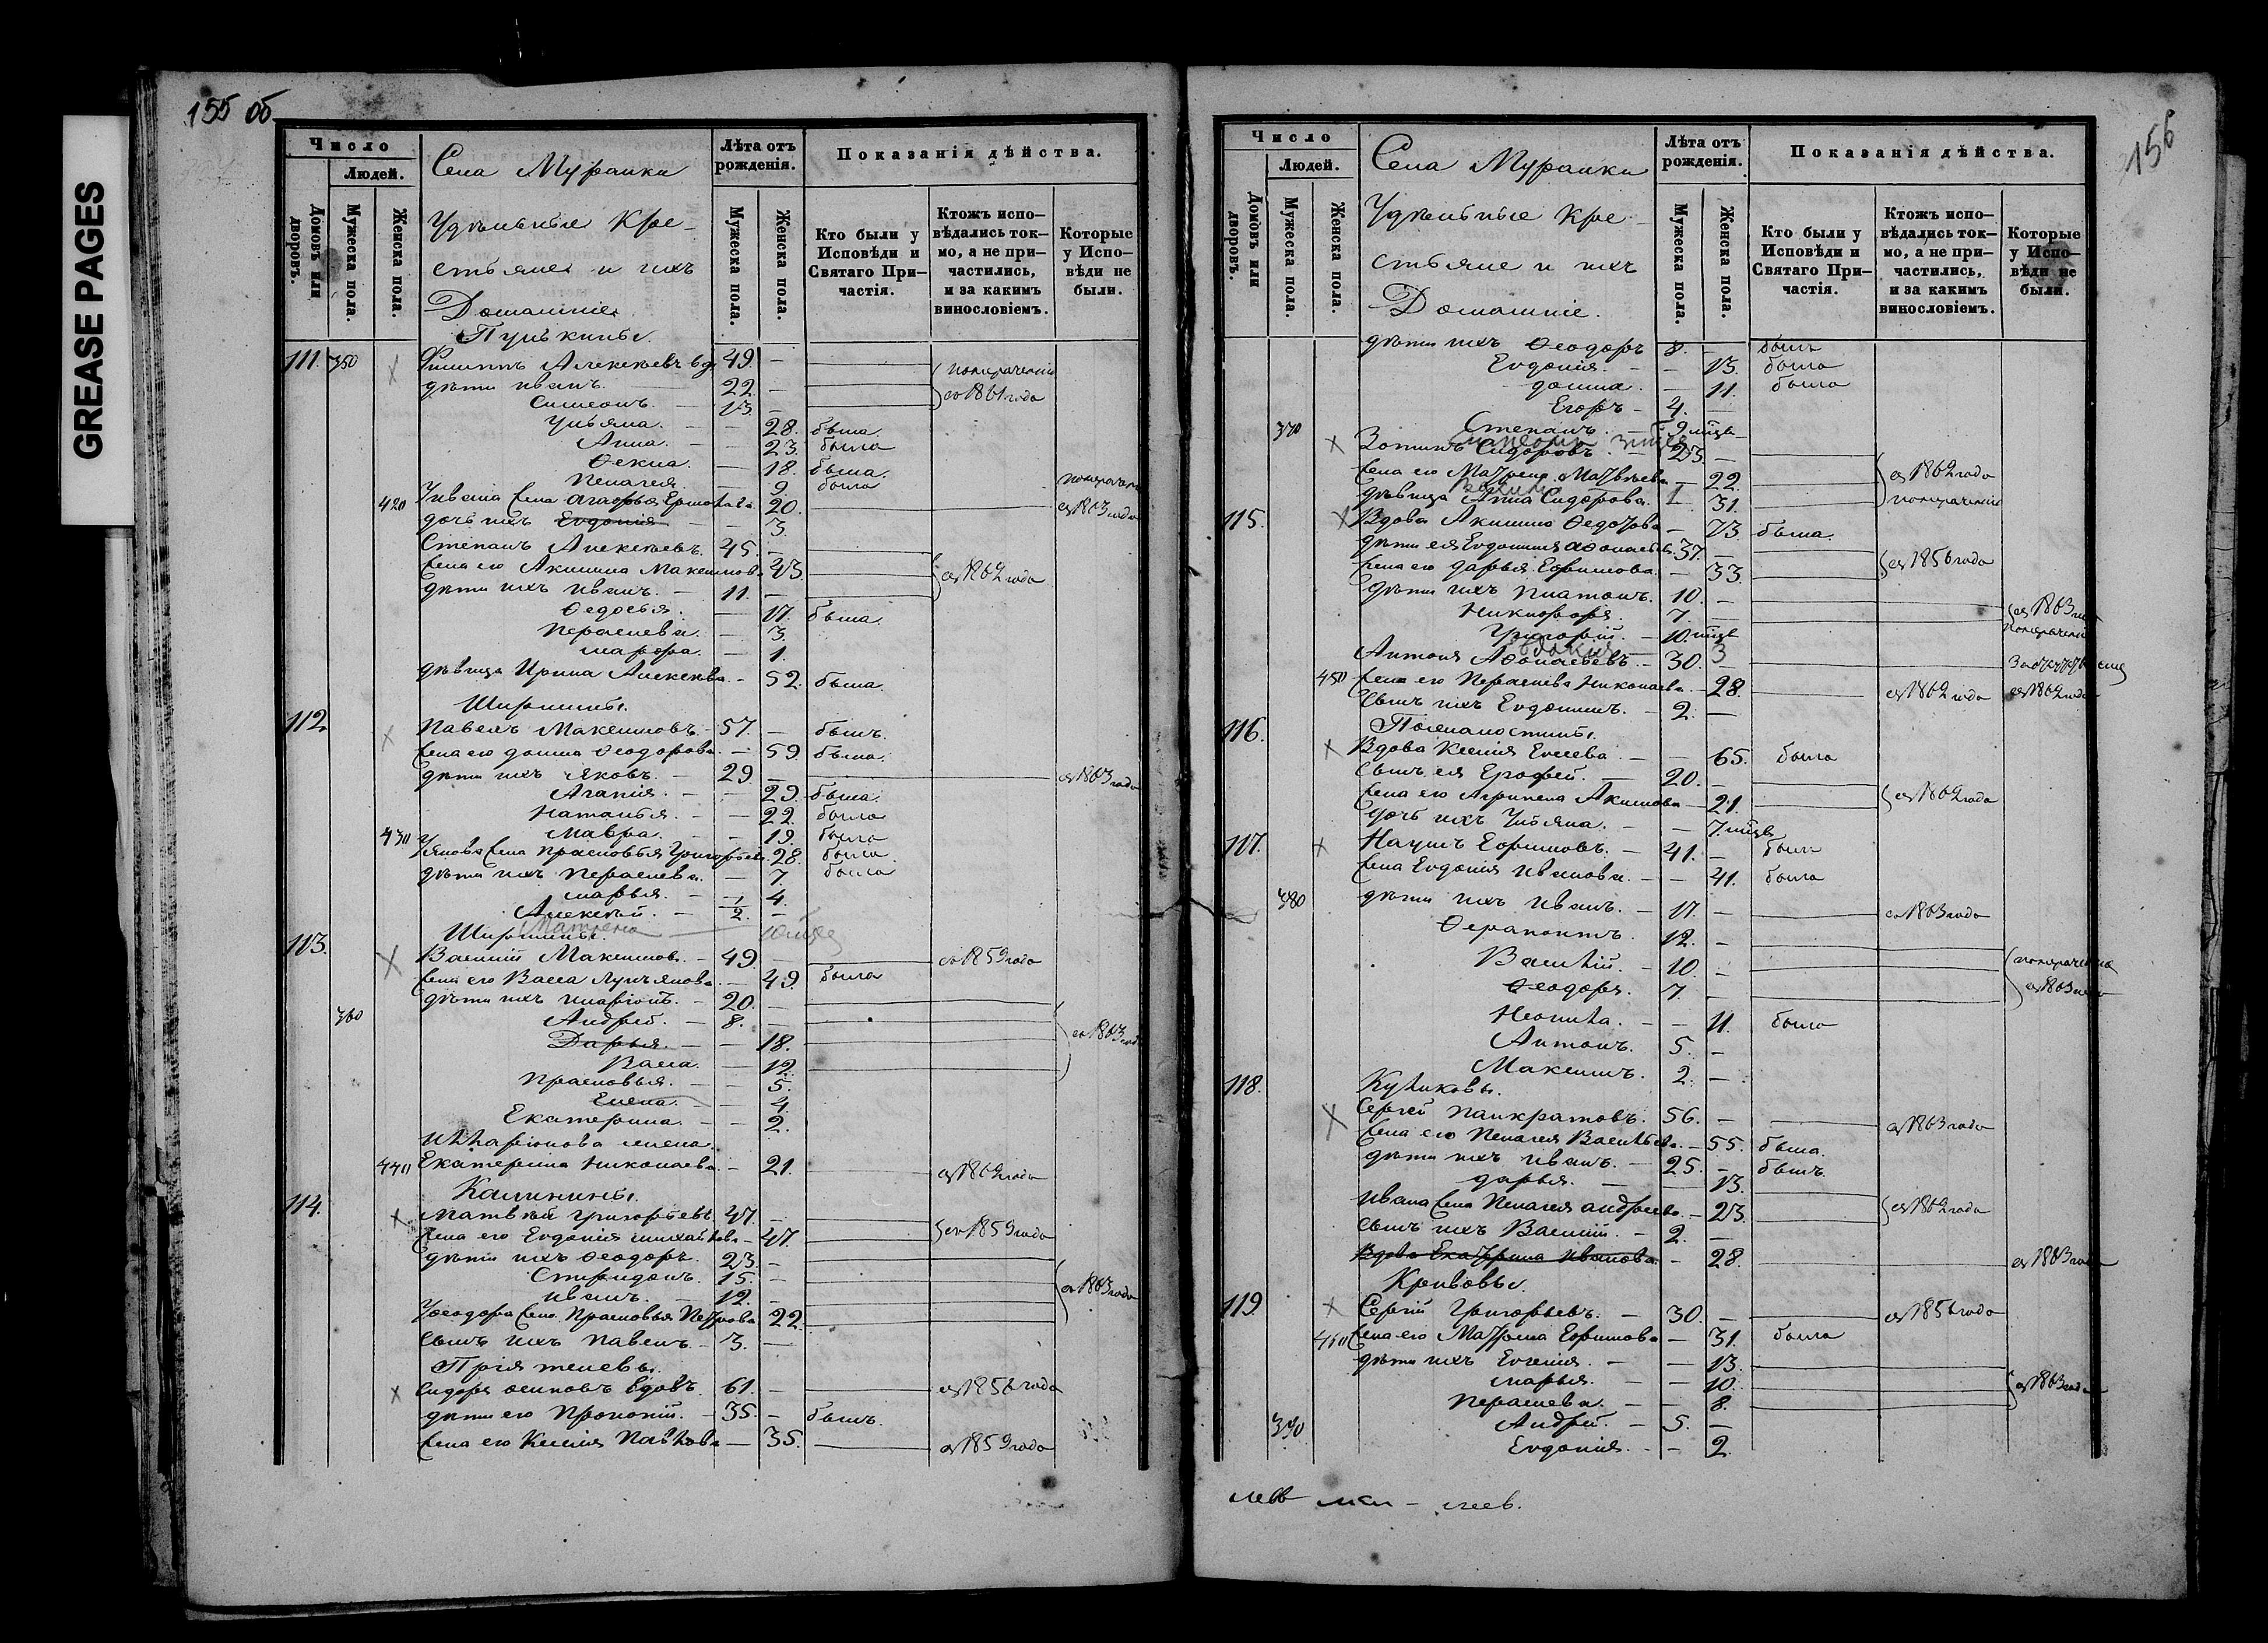 GREASE PAGES
155 об
Число
Людей.
Домовъ или дворовъ.
Мужеска пола.
Женска пола.
Села Муранки
Удѣльные Кре-
стьяне и ихъ
Домашніе.
Лѣта отъ рожденія.
Мужеска пола.
Женска пола.
Показанія дѣйства.
Кто были у Исповѣди и Святаго При-частія.
Ктожъ испо-вѣдались ток-мо, а не при-частились, и за какимъ винословіемъ.
Которые у Испо-вѣди не были.
111. 350 Филиппъ Алексѣевъ вд. 49. —
дѣти Иванъ. 22. — со 1861 года
Симеонъ. — 13. —
Ульяна. — — 28. была.
Анна. — — 23. была
Ѳекла. — 18. была.
Пелагея. — 9. была
420 Ивана жена Агафья 20. съ 1863 года
дочь ихъ Евдокія — — 3.
Степанъ Алексѣевъ. 45. —
жена его Акилина Максимова 43. съ 1862 года
дѣти ихъ Иванъ. — 11. —
Ѳедосья. — 17. была.
Параскева. — 3.
Марѳа. — 1.
дѣвица Ирина Алексѣева. — 52. была.
Ширшины.
112. Павелъ Максимовъ. 57. — былъ.
жена его Домна Ѳеодорова. — 59. была.
дѣти ихъ Яковъ. — 29. — съ 1863 года
Агапія. — — 29. была.
Наталья. — — 22. была
430 Мавра. — — 19. была
Якова жена Прасковья Григорьева. 28. была
дѣти ихъ Параскева. — 7. была
Марья. — 4.
Алексѣй. — 1/2. —
Матрена
Ширшины.
113. Василій Максимовъ. — 49. со 1859 года
жена его Васса Лукъянова. — 49. была
дѣти ихъ Иларіонъ. — 20. —
360 Андрей. — 8. — со 1863 года
Дарья. — — 18.
Васса. — 12.
Прасковья. — — 5.
Елена. — 4.
Екатерина. — — 2.
Илларіонова жена
440 Екатерина Николаева. — 21. съ 1862 года
Калинины.
114. Матвѣй Григорьевъ 47. —
жена его Евдокія Михайлова — 47. со 1859 года
дѣти ихъ Ѳеодоръ. 23. —
Спиридонъ. 15. —
Иванъ. — 12. — со 1863 года
Ѳеодора жена Прасковья Петрова 22.
сынъ ихъ Павелъ. — 3. —
Пріятелевы.
Сидоръ Осиповъ вдовъ. 61. — съ 1856 года
дѣти его Прокопій. — 35. — былъ.
жена его Ксенія Павлова — 35. съ 1859 года
156
Число
Людей.
Домовъ или дворовъ.
Мужеска пола.
Женска пола.
Села Муранки
Удѣльные Кре-
стьяне и ихъ
Домашніе.
Лѣта отъ рожденія.
Мужеска пола.
Женска пола.
Показанія дѣйства.
Кто были у Исповѣди и Святаго При-частія.
Ктожъ испо-вѣдались ток-мо, а не при-частились, и за какимъ винословіемъ.
Которые у Испо-вѣди не были.
дѣти ихъ Ѳеодоръ 8. — былъ
Евдокія. — — 13. была
Домна. — 11. была
Егоръ — 4. —
370 Степанъ. — 9 мѣсяц.
Сидоровъ. — 25. —
жена его Матрена Матвѣева — 22. съ 1862 года
дѣвица Анна Сидорова. 31.
115. Вдова Акилина Ѳедотова — 73. была.
дѣти ея Евдокимъ 37. —
жена его Дарья Ефимова. — 33. съ 1856 года
дѣти ихъ Платонъ. 10. —
Никифоръ. 7. — съ 1863 года
Григорій. — 10. мѣсяц.
Антонъ — 30. —
450 жена его Параскева Николаева — 28. съ 1862 года съ 1862 года
сынъ ихъ Евдокимъ. — 2. —
116.
Вдова Ксенія — — 65. была
сынъ ея Ерофей. — 20. —
жена его Агрипена Акимова — 21. съ 1862 года
дочь ихъ Ульяна. — — 7. мѣсяц.
117. Наумъ Ефимовъ. — 41. — былъ
жена Евдокія Иванова. — — 41. была
380 дѣти ихъ Иванъ. — 17. — со 1863 года
Ѳерапонтъ. 12. —
Василій. — 10. —
Ѳеодоръ. 7. — съ 1863 года
Неонила. — — 11. была
Антонъ. 5. —
Максимъ. 2. —
118. Куликовы.
Сергей Панкратовъ. 56. — съ 1863 года
жена его Пелагея Васильева. — 55. была.
дѣти ихъ Иванъ. — 25. — былъ.
Дарья. — — 13.
Ивана жена Пелагея Андреева — 23. съ 1862 года
сынъ ихъ Василій. — 2. —
Вдова Екатерина Иванова. — 28. съ 1863 года
Кривовы.
119. Сергій Григорьевъ. — 30. — съ 1856 года
460 жена его Матрена Ефимова — 31. была
дѣти ихъ Евгенія. — — 13.
Марья. — — 10. съ 1863 года
Параскева. — — 8.
390 Андрей. — 5. —
Евдокія. — — 2.